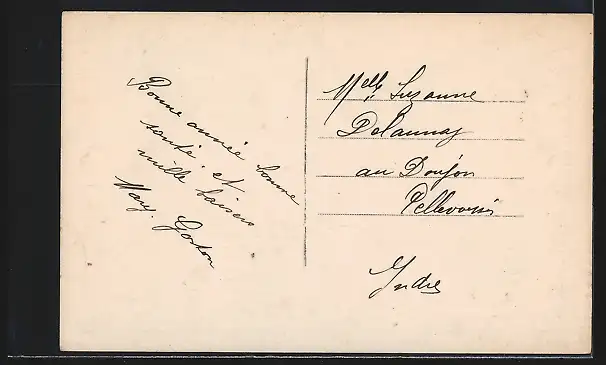 Bonne année bonne
santé, et
mille baisers
Mary. Gaston
Melle Suzanne
Delaunay
au Donjon
Pellevoisin
Indre